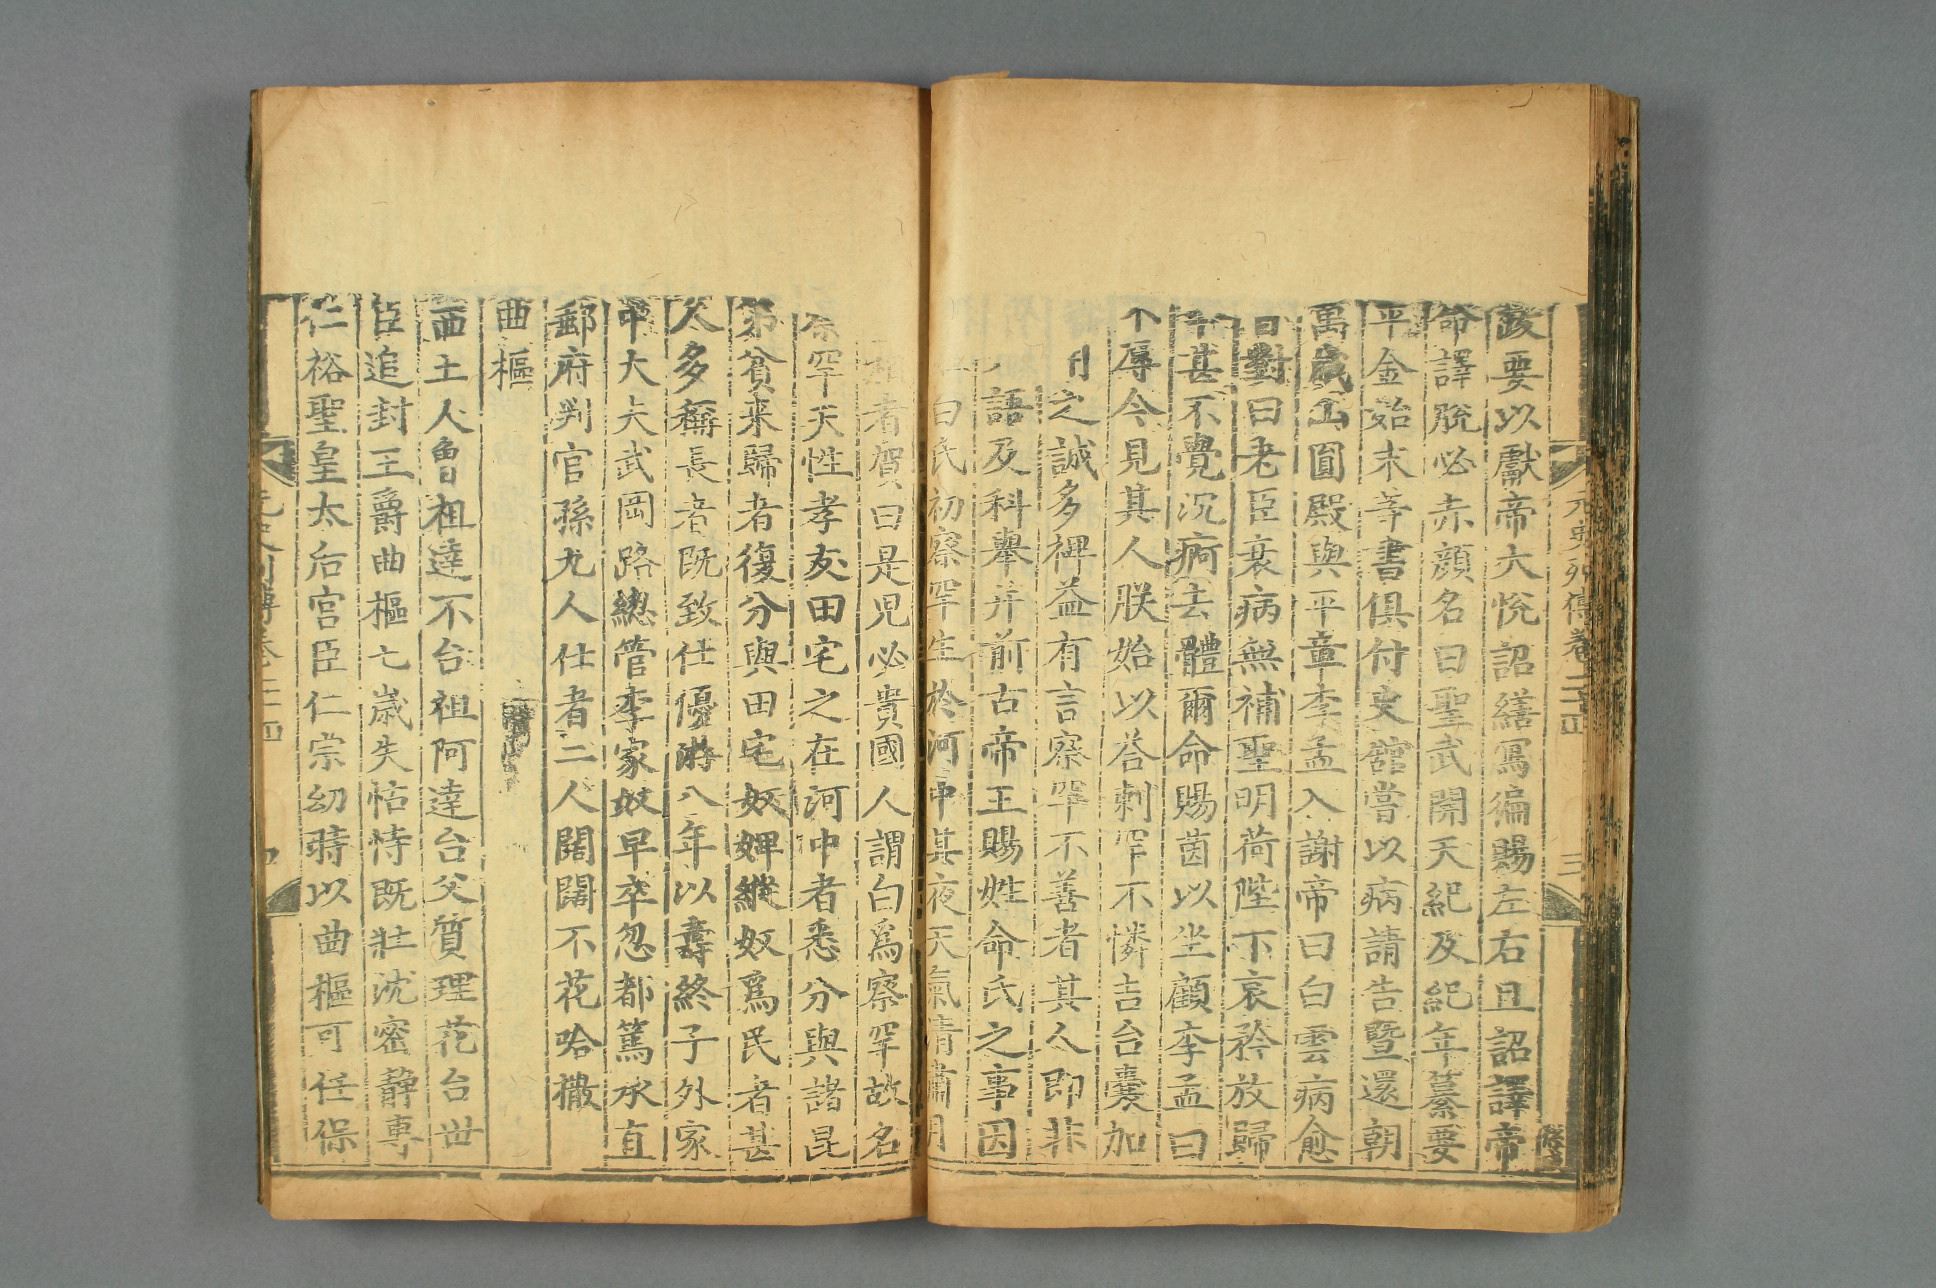 元史列傳卷二十四 三
政要以獻帝大悅詔繕寫徧賜左右且詔譯帝
命譯脫必赤顏名曰聖武開天紀及紀年纂要
平金始末等書俱付史舘嘗以病請告暨還朝
萬歲山圓殿與平章李孟入謝帝曰白雲病愈
對曰老臣衰病無補聖明荷陛下哀矜放歸
甚不覺沉痾去體爾命賜茵以坐顧李孟曰
不辱今見其人朕始以荅剌罕不憐吉台囊加
之誠多裨益有言察罕不善者其人即非
語及科舉并前古帝王賜姓命氏之事因
白氏初察罕生於河中其夜天氣清肅月
者賀曰是児必貴國人謂白爲察罕故名
罕天性孝友田宅之在河中者悉分與諸昆
弟貧来歸者復分與田宅奴婢縱奴爲民者甚
人多稱長者既致仕優游八年以壽終子外家
中大夫武岡路總管李家奴早卒忽都篤承直
郎府判官孫九人仕者二人闊闊不花哈撒
曲樞
西土人曾祖達不台祖阿達台父質理花台世
臣追封王爵曲樞七歲失怙恃既壯沈密静專
仁裕聖皇太后宫臣仁宗幼時以曲樞可任保
元史列傳卷二十四